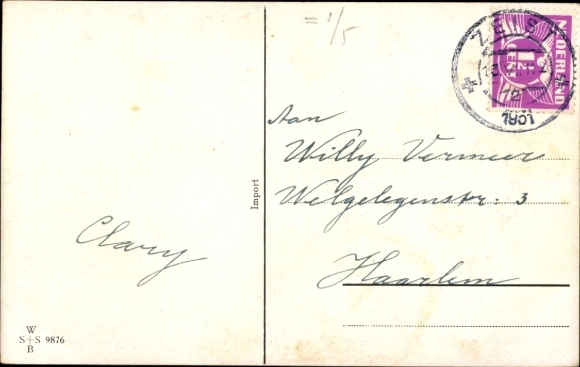 = 1/5
ZEIST
1931
NEDERLAND
1½
CENT
Aan
Willy Vermeer
Welgelegenstr: 3
Haarlem
Clary
Import
W
S+S 9876
B